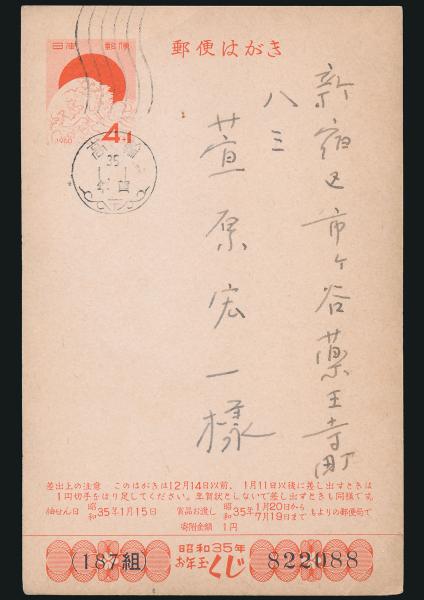 郵便はがき
日本郵便
1960
4+1
高輪
35
1.1
新宿区市ヶ谷薬王寺町
八三
萱原宏一様
差出上の注意 このはがきは12月14日以前、1月11日以後に差し出すときは
1円切手をはり足してください。年賀状としないで差し出すときも同様です。
抽せん日 昭和35年1月15日 賞品お渡し 昭和35年1月20日から7月19日まで もよりの郵便局で
寄附金額 1円
昭和35年
お年玉くじ
(187組)
822088